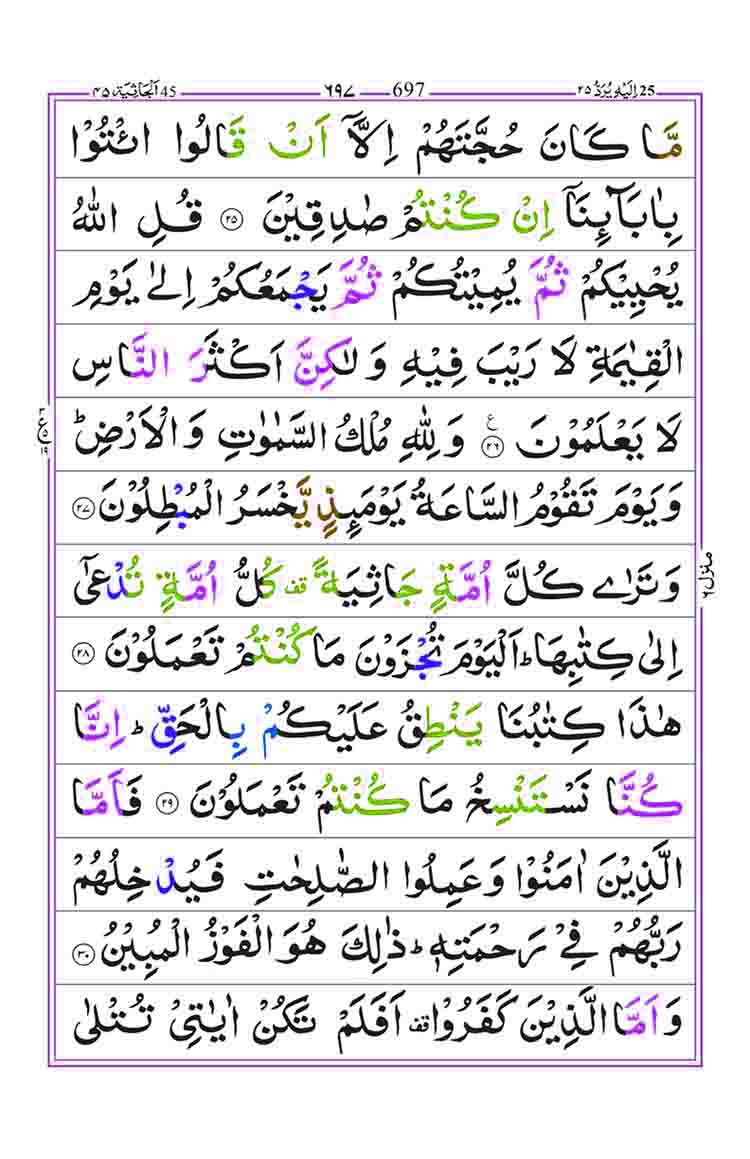 اِلَيْهِ يُرَدُّ ٢٥ 25 697 ٦٩٧ اَلْجَاثِيَة ٤٥ 45
مَّا كَانَ حُجَّتَهُمْ اِلَّآ اَنْ قَالُوا ائْتُوْا
بِاٰبَآئِنَآ اِنْ كُنْتُمْ صٰدِقِيْنَ ۝٢٥ قُلِ اللّٰهُ
يُحْيِيْكُمْ ثُمَّ يُمِيْتُكُمْ ثُمَّ يَجْمَعُكُمْ اِلٰى يَوْمِ
الْقِيٰمَةِ لَا رَيْبَ فِيْهِ وَلٰكِنَّ اَكْثَرَ النَّاسِ
لَا يَعْلَمُوْنَ ۝٢٦ ع وَلِلّٰهِ مُلْكُ السَّمٰوٰتِ وَالْاَرْضِ ؕ
وَيَوْمَ تَقُوْمُ السَّاعَةُ يَوْمَئِذٍ يَّخْسَرُ الْمُبْطِلُوْنَ ۝٢٧
وَتَرٰى كُلَّ اُمَّةٍ جَاثِيَةً قف كُلُّ اُمَّةٍ تُدْعٰٓى
اِلٰى كِتٰبِهَا ؕ اَلْيَوْمَ تُجْزَوْنَ مَا كُنْتُمْ تَعْمَلُوْنَ ۝٢٨
هٰذَا كِتٰبُنَا يَنْطِقُ عَلَيْكُمْ بِالْحَقِّ ؕ اِنَّا
كُنَّا نَسْتَنْسِخُ مَا كُنْتُمْ تَعْمَلُوْنَ ۝٢٩ فَاَمَّا
الَّذِيْنَ اٰمَنُوْا وَعَمِلُوا الصّٰلِحٰتِ فَيُدْخِلُهُمْ
رَبُّهُمْ فِيْ رَحْمَتِهٖ ؕ ذٰلِكَ هُوَ الْفَوْزُ الْمُبِيْنُ ۝٣٠
وَاَمَّا الَّذِيْنَ كَفَرُوْا قف اَفَلَمْ تَكُنْ اٰيٰتِيْ تُتْلٰى
منزل ٦
ع ٥ ١٩